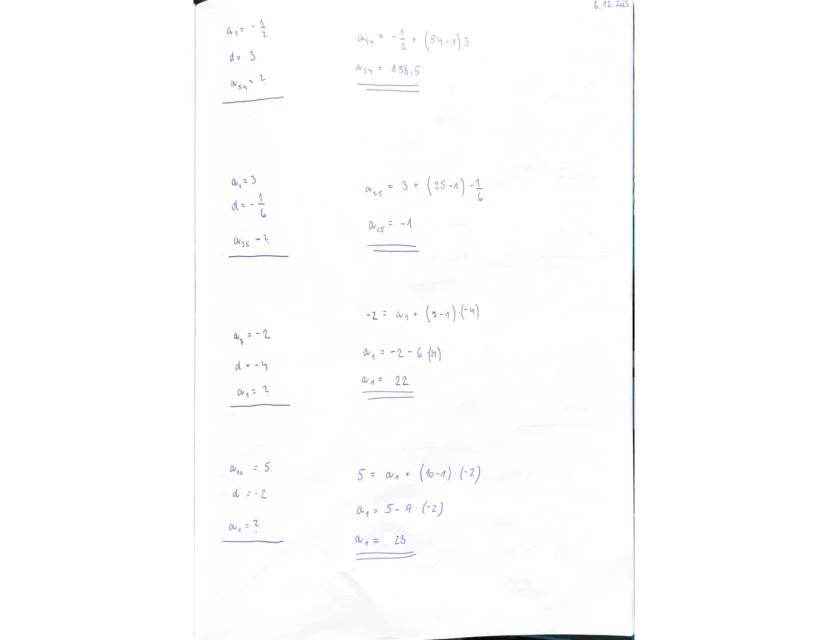 6.12.2023
a₁ = -1/2
d = 3
a₅₄ = ?
a₅₄ = -1/2 + (54-1)3
a₅₄ = 158,5
a₁ = 3
d = -1/6
a₂₅ = ?
a₂₅ = 3 + (25-1) · -1/6
a₂₅ = -1
a₇ = -2
d = -4
a₁ = ?
-2 = a₁ + (7-1)·(-4)
a₁ = -2 - 6·(-4)
a₁ = 22
a₁₀ = 5
d = -2
a₁ = ?
5 = a₁ + (10-1)·(-2)
a₁ = 5 - 9·(-2)
a₁ = 23